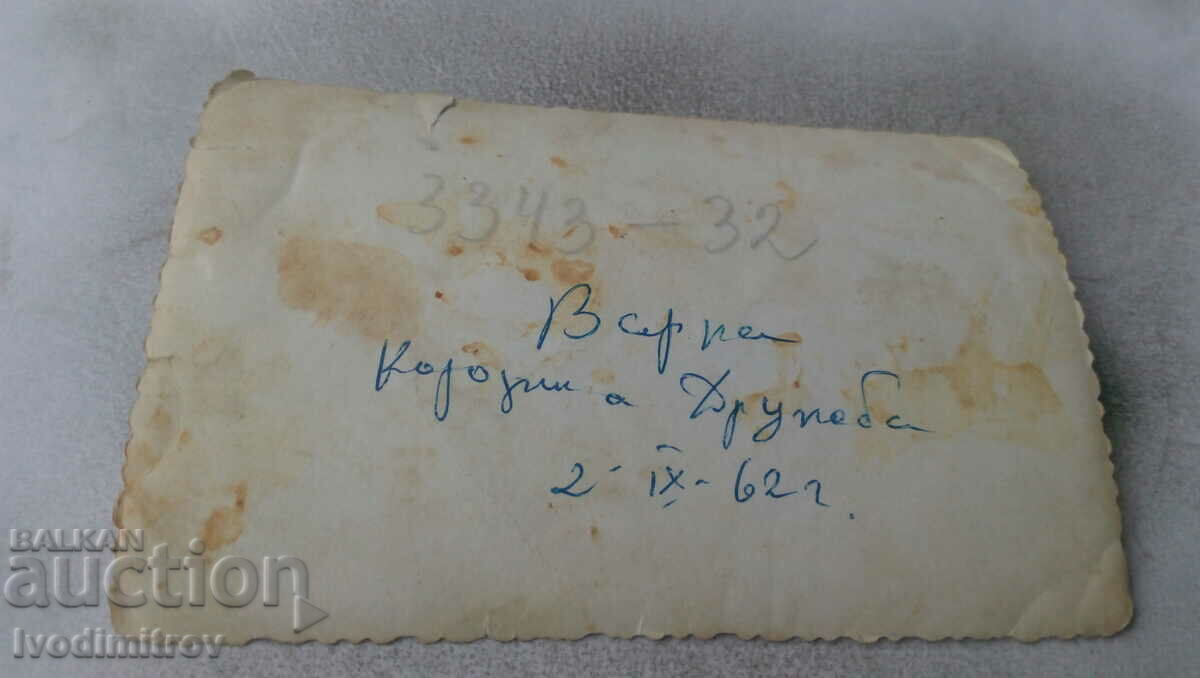 3343 - 32
Варна
Корозим а Дружба
2 - IX - 62 г.
BALKAN
auction
Ivodimitrov